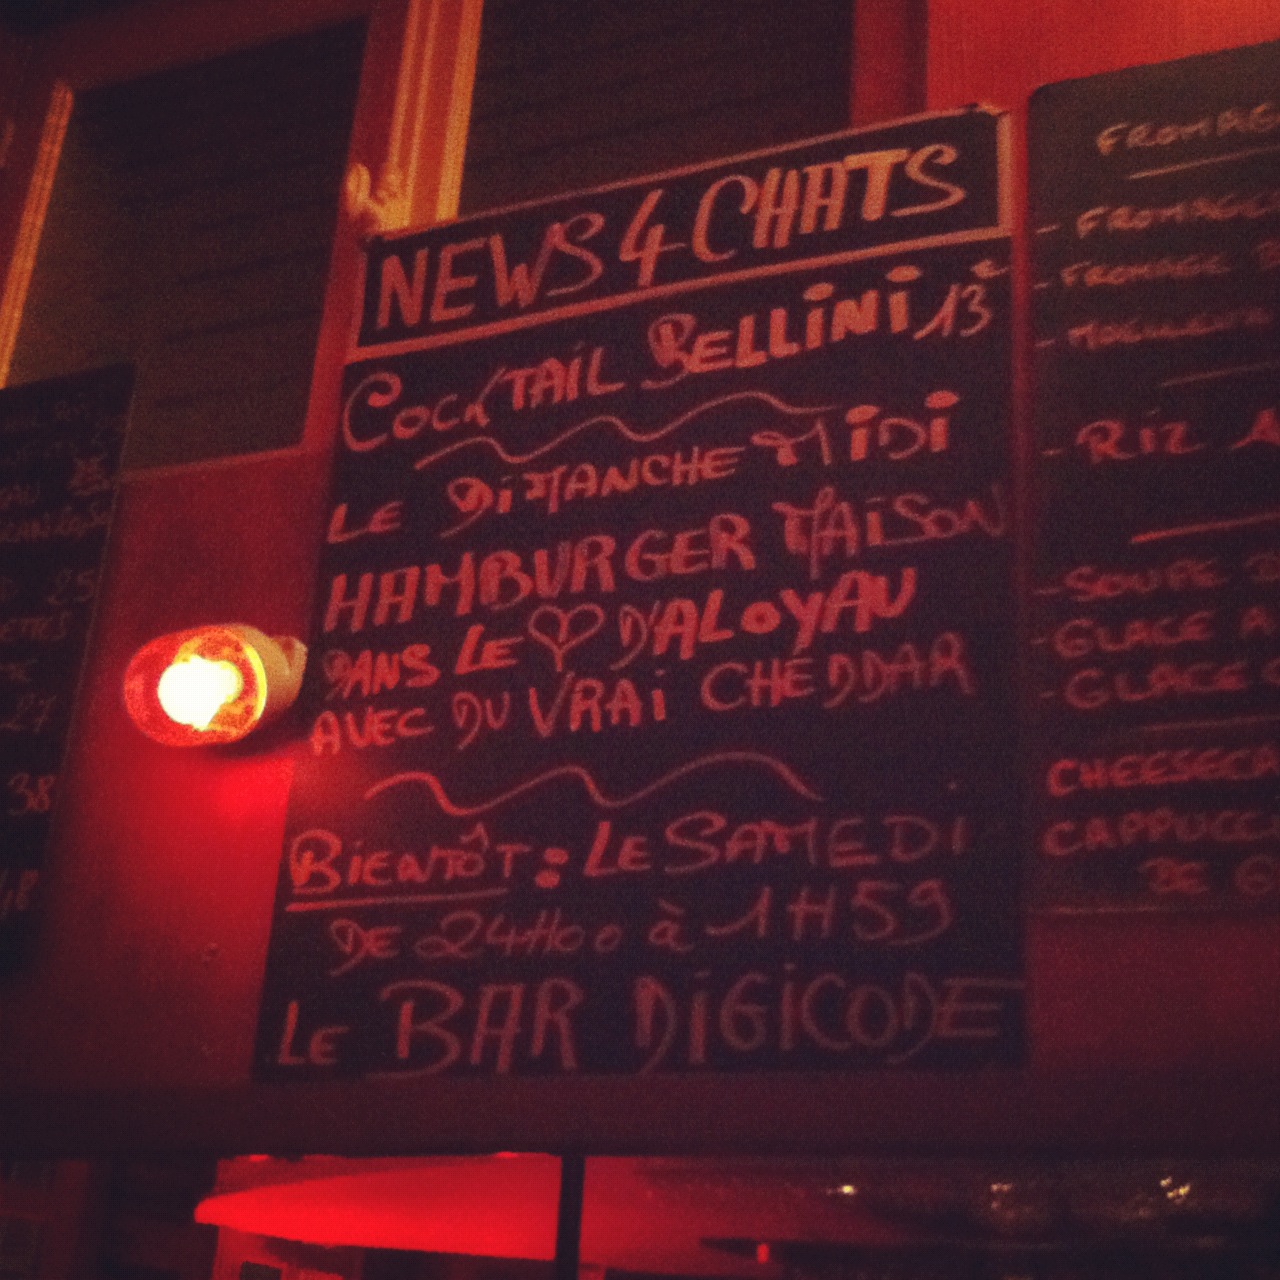 NEWS 4 CHATS
COCKTAIL BELLINI 13€
LE DIMANCHE MIDI
HAMBURGER MAISON
DANS LE ♡ D'ALOYAU
AVEC DU VRAI CHÉDDAR
BIENTÔT : LE SAMEDI
DE 24H00 à 1H59
LE BAR DIGICODE
FROMAG
- FROMAGE
- FROMAGE
- RIZ A
- SOUPE
- GLACE A
- GLACE
CHEESECA
CAPPUCC
DE G
25
27
38
48